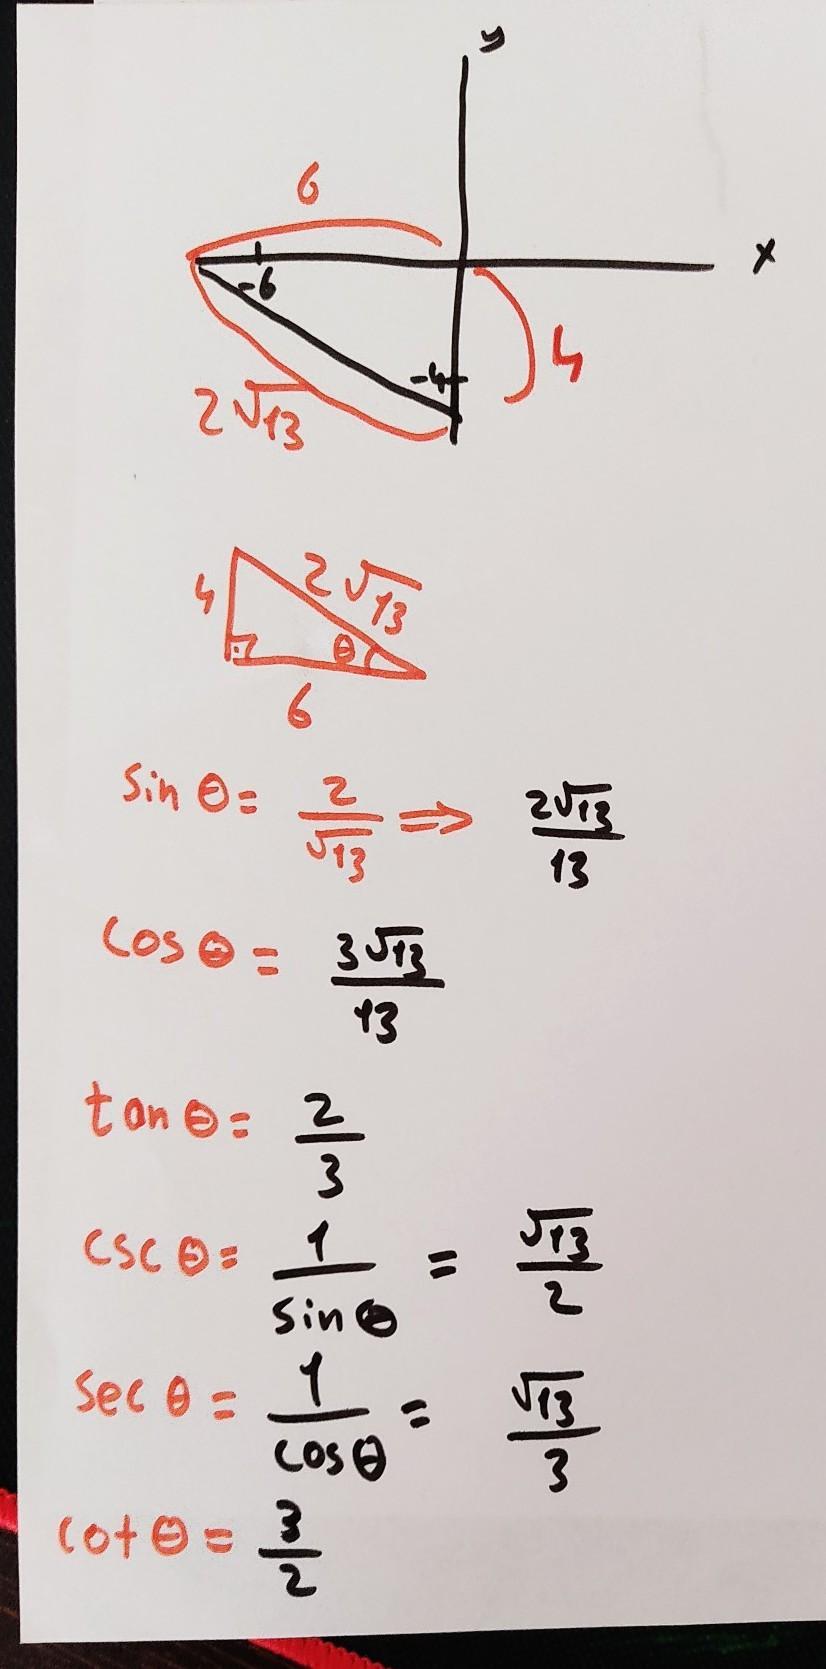 y
6
x
-6
-4
4
2√13
4
2√13
θ
6
sin θ = 2/√13 ⇒ 2√13/13
cos θ = 3√13/13
tan θ = 2/3
csc θ = 1/sin θ = √13/2
sec θ = 1/cos θ = √13/3
cot θ = 3/2